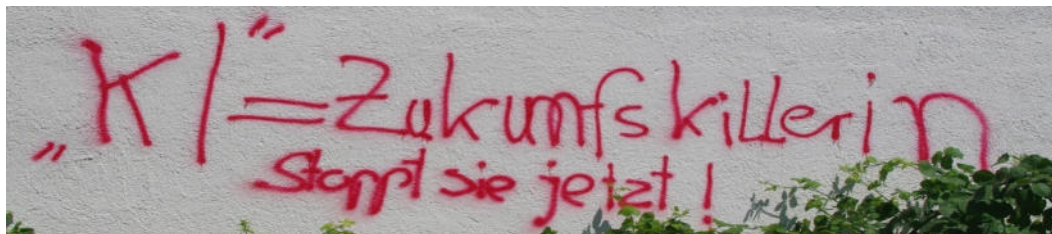 „KI"=Zukunfskillerin
Stoppt sie jetzt!